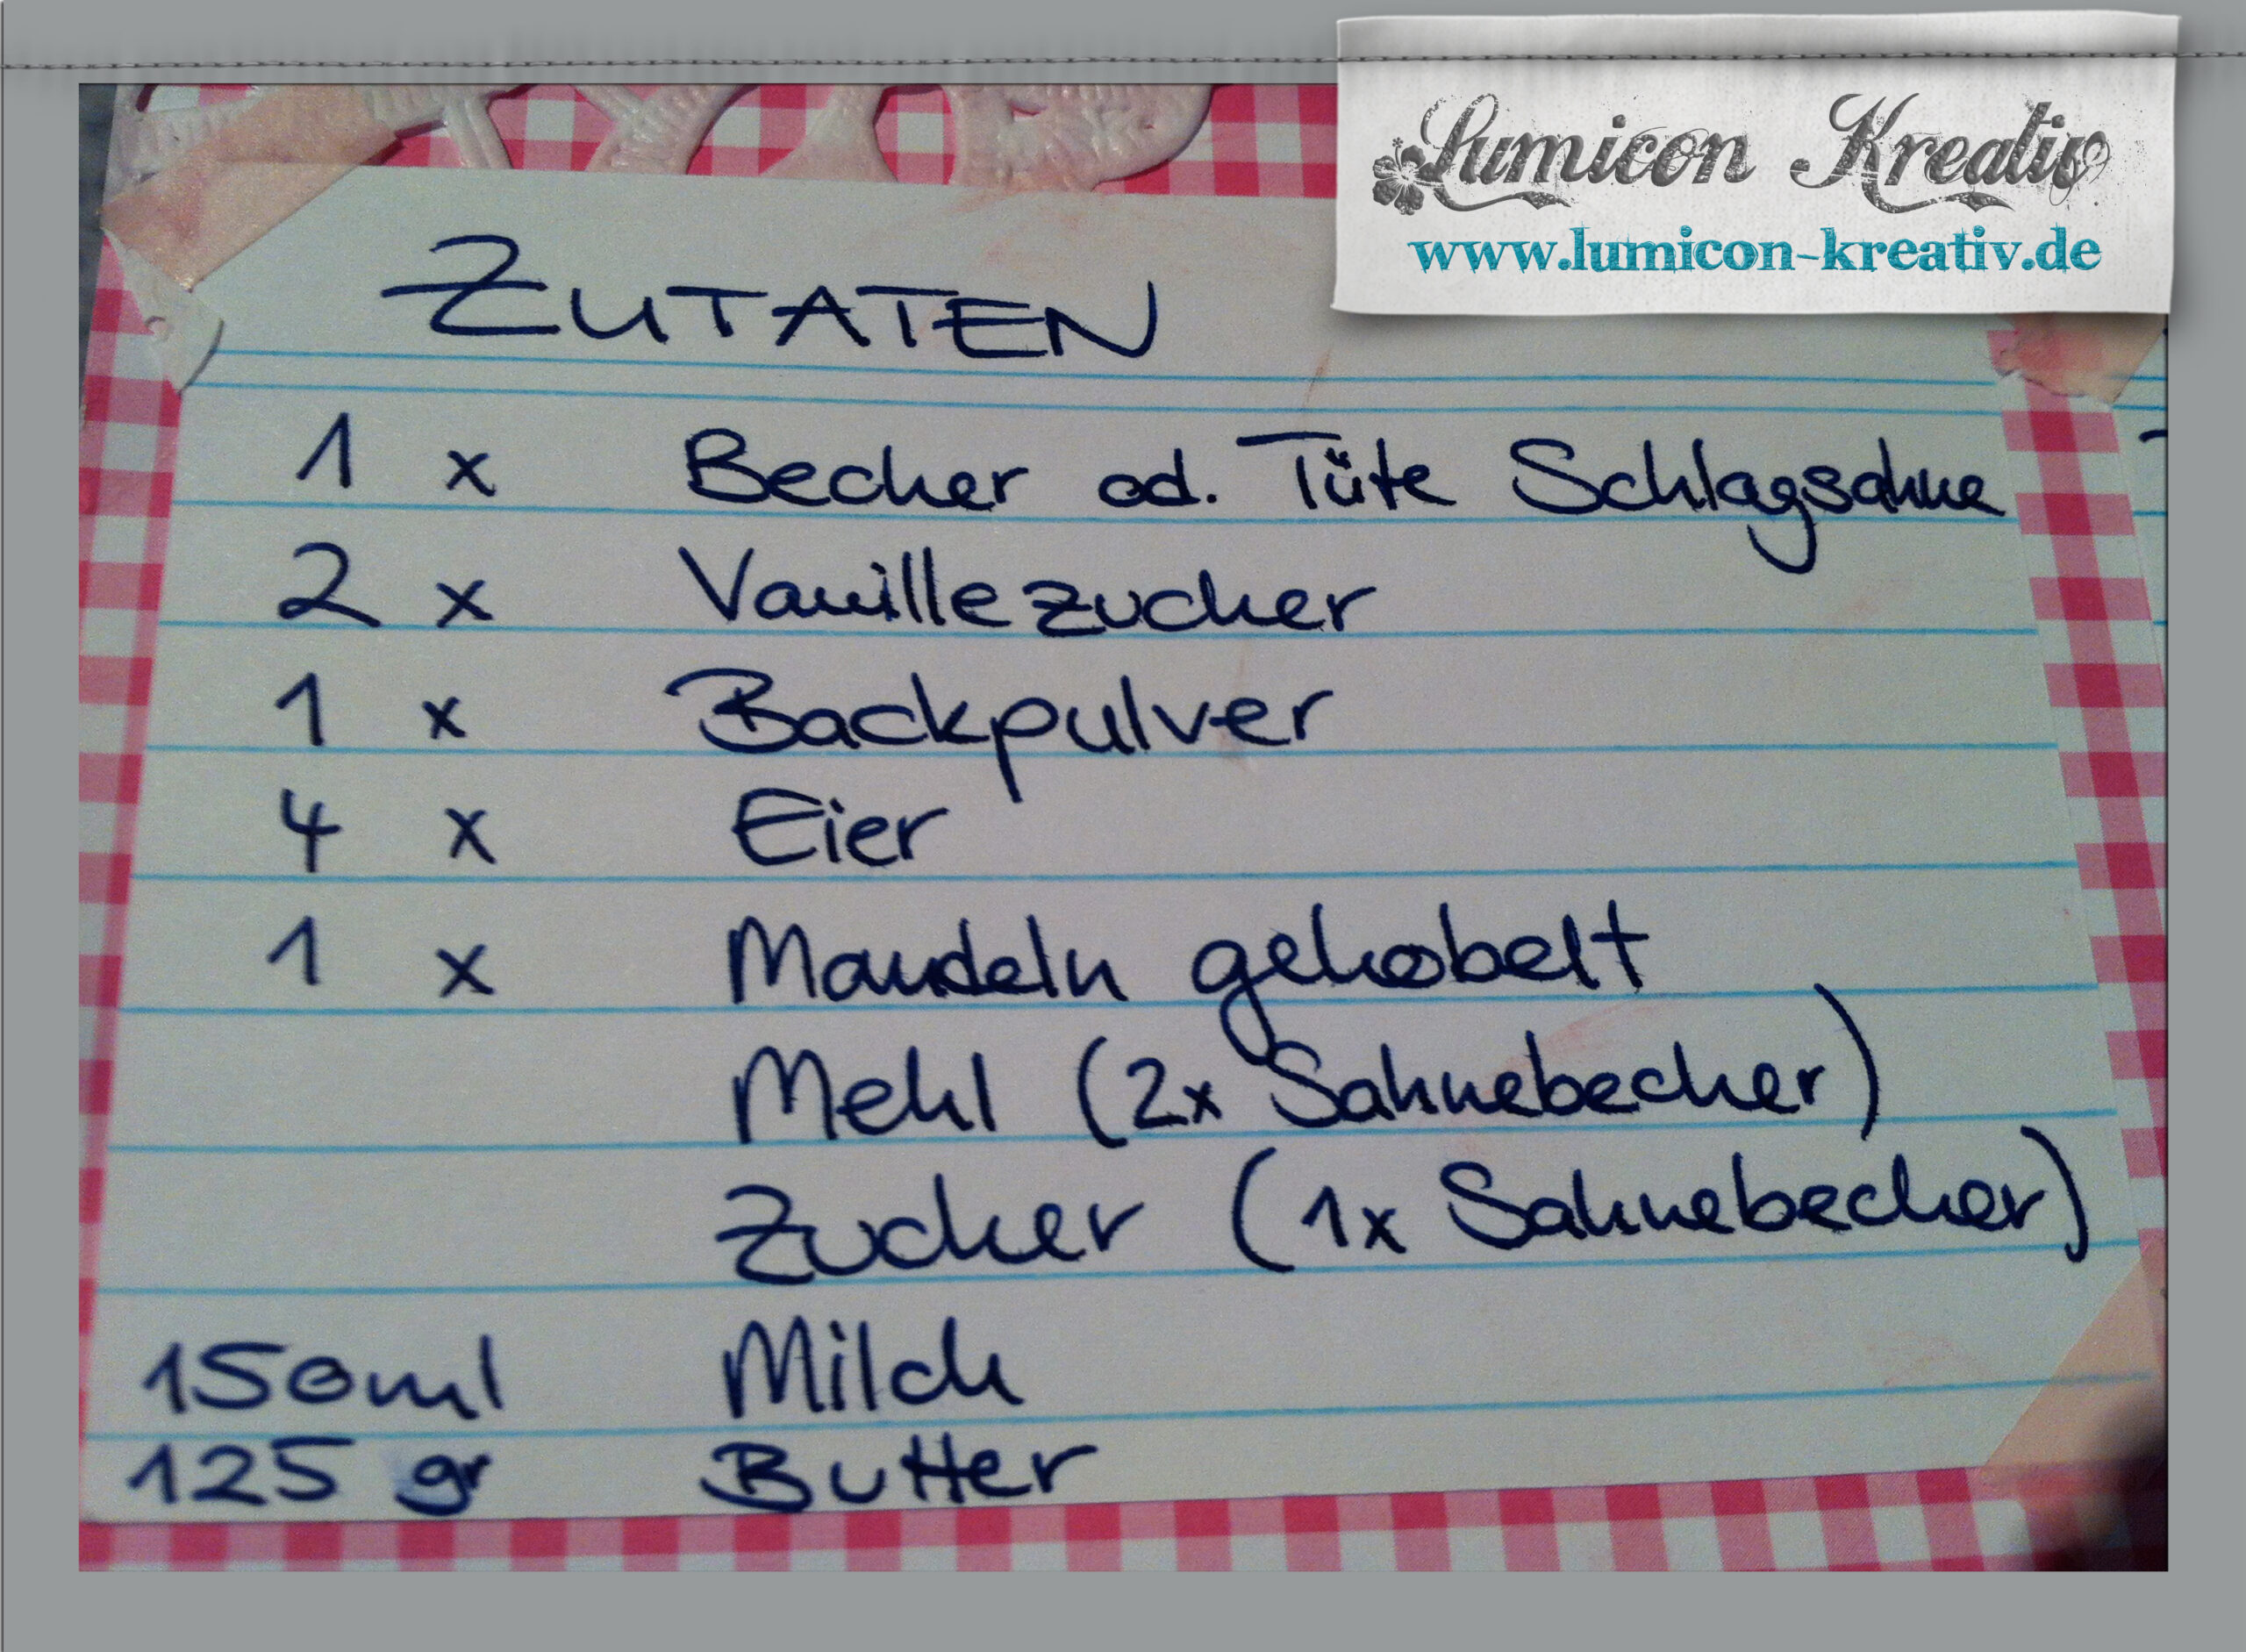 Lumicon Kreativ
www.lumicon-kreativ.de
ZUTATEN
1 x Becher od. Tüte Schlagsahne
2 x Vanillezucker
1 x Backpulver
4 x Eier
1 x Mandeln gehobelt
Mehl (2x Sahnebecher)
Zucker (1x Sahnebecher)
150ml Milch
125 gr Butter